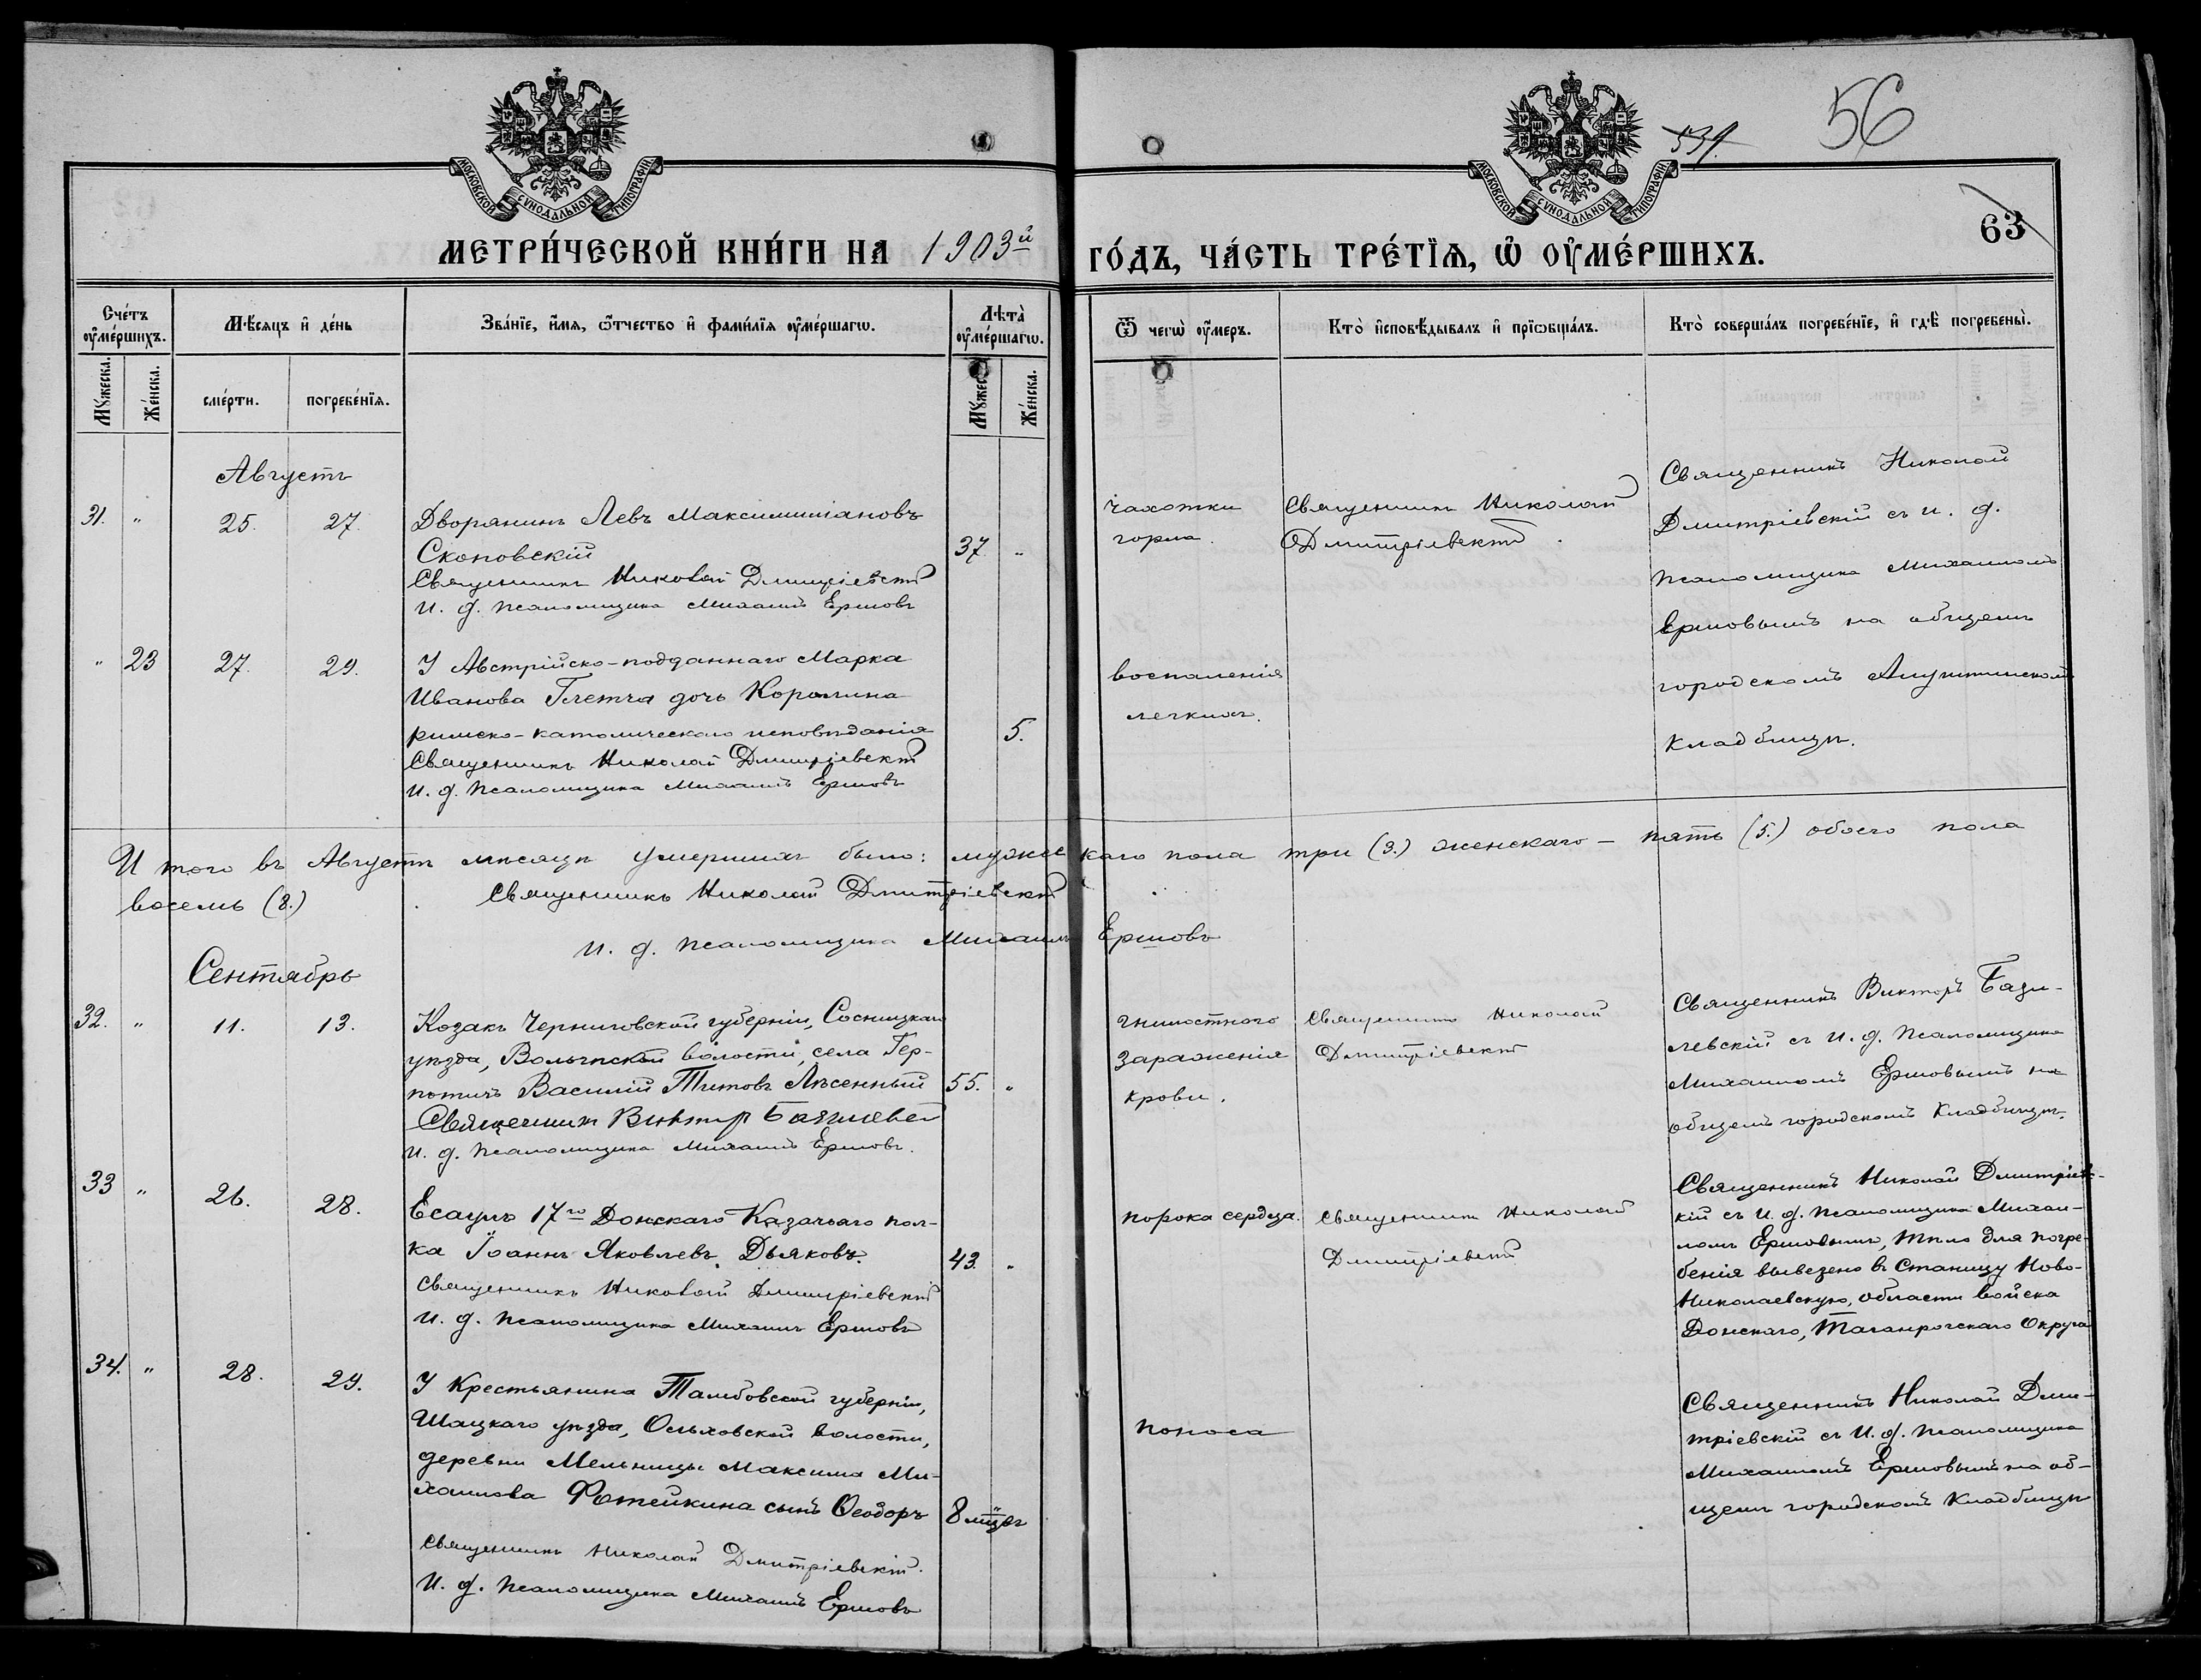 56
539.
МОСКОВСКОЙ СѴНОДАЛЬНОЙ ТИПОГРАФІИ
МОСКОВСКОЙ СѴНОДАЛЬНОЙ ТИПОГРАФІИ
63
МЕТРИ́ЧЕСКОЙ КНИ́ГИ НА 1903й ГО́ДЪ, ЧА́СТЬ ТРЕ́ТЇѦ, Ѽ ОУ҆МЕ́РШИХЪ.
Сче́тъ оу҆ме́ршихъ.
Мꙋ́жеска.
Же́нска.
Мѣ́сяцъ и҆ де́нь
сме́рти.
погребе́нїѧ.
Зва́нїе, и҆́мѧ, ѻ҆́тчество и҆ фами́лїѧ оу҆ме́ршагѡ.
Лѣ́та оу҆ме́ршагѡ.
Мꙋ́жеска.
Же́нска.
Ѿ чегѡ̀ оу҆́меръ.
Кто̀ и҆сповѣ́дывалъ и҆ прїѡбща́лъ.
Кто̀ соверша́лъ погребе́нїе, и҆ гдѣ̀ погребены̀.
Августъ
31. " 25. 27.
Дворянинъ Левъ Максимиліановъ
Скоповскій
37. "
Священникъ Николай Дмитріевскій
И. д. псаломщика Михаилъ Ершовъ
чахотки
горла.
Священникъ Николай
Дмитріевскій.
Священникъ Николай
Дмитріевскій съ и. д.
псаломщика Михаиломъ
Ершовымъ на общемъ
городскомъ Алуштинскомъ
кладбищѣ.
" 23 27. 29.
У Австрійско-подданнаго Марка
Иванова дочь Каролина
римско-католическаго исповѣданія
5.
Священникъ Николай Дмитріевскій
И. д. псаломщика Михаилъ Ершовъ
воспаленія
легкихъ.
Итого въ Августѣ мѣсяцѣ умершихъ было: мужескаго пола три (3.) женскаго – пять (5.) обоего пола
восемь (8.)
Священникъ Николай Дмитріевскій
И. д. псаломщика Михаилъ Ершовъ
Сентябрь
32. " 11. 13.
Козакъ Черниговской губерніи, Сосницкаго
уѣзда, волости, села
Василій Титовъ Лѣсенный
55. "
Священникъ Викторъ Базилевскій
И. д. псаломщика Михаилъ Ершовъ.
гнилостнаго
зараженія
крови.
Священникъ Николай
Дмитріевскій
Священникъ Викторъ Бази-
левскій съ и. д. псаломщика
Михаиломъ Ершовымъ на
общемъ городскомъ кладбищѣ.
33 " 26. 28.
Есаулъ 17го Донскаго Казачьяго пол-
ка Іоаннъ Яковлевъ Дьяковъ.
43. "
Священникъ Николай Дмитріевскій
И. д. псаломщика Михаилъ Ершовъ
порока сердца.
Священникъ Николай
Дмитріевскій
Священникъ Николай Дмитріевс-
кій съ и. д. псаломщика Михаи-
ломъ Ершовымъ, тѣло для погре-
бенія вывезено въ станицу Ново-
Николаевскую, области войска
Донскаго, Таганрогскаго Округа
34. " 28. 29.
У Крестьянина Тамбовской губерніи,
Шацкаго уѣзда, Ольховской волости,
деревни Мельницы Максима Ми-
хаилова Фотейкина сынъ Ѳеодоръ
8 мѣцевъ
Священникъ Николай Дмитріевскій.
И. д. псаломщика Михаилъ Ершовъ
поноса
Священникъ Николай Дми-
тріевскій съ и. д. псаломщика
Михаиломъ Ершовымъ на об-
щемъ городскомъ кладбищѣ